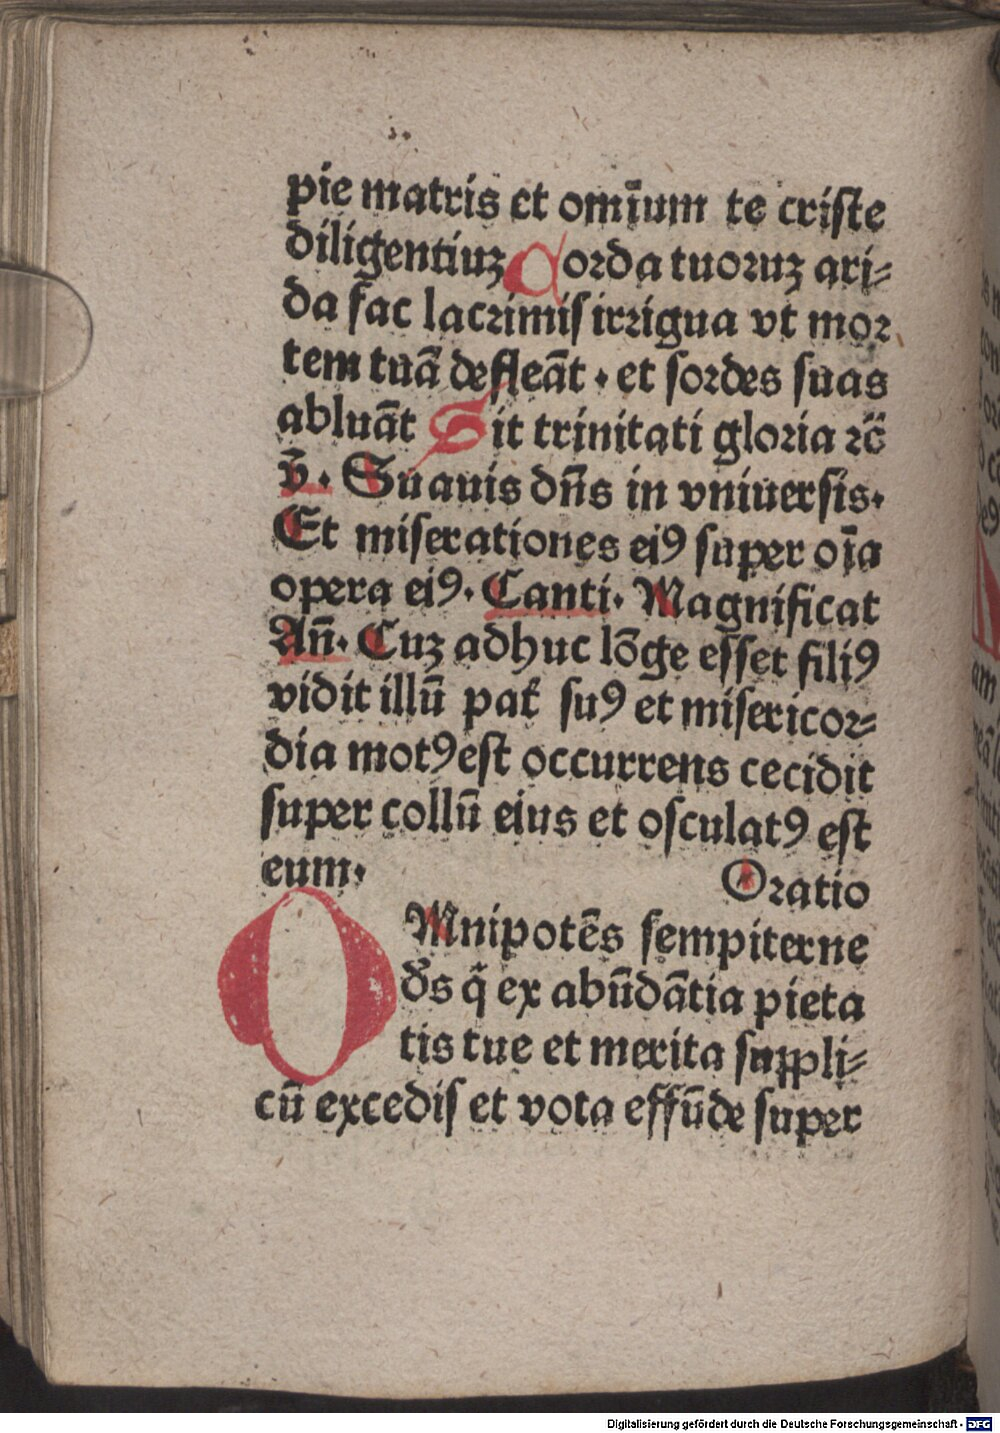 pie matris et omīum te criste
diligentiuꝫ Corda tuoruꝫ ari⸗
da fac lacrimis irrigua vt mor
tem tuā defleāt · et sordes suas
abluāt Sit trinitati gloria ꝛc̄
v̄. Suauis dn̄s in vniuersis.
Et miserationes eiꝰ super oīa
opera eiꝰ. Canti. Magnificat
An̄. Cuꝫ adhuc lōge esset filiꝰ
vidit illū pat̄ suꝰ et misericor⸗
dia motꝰ est occurrens cecidit
super collū eius et osculatꝰ est
eum.
Oratio
OMnipotēs sempiterne
ds̄ q̄ ex abūdātia pieta
tis tue et merita suppli⸗
cū excedis et vota effūde super
Digitalisierung gefördert durch die Deutsche Forschungsgemeinschaft - DFG